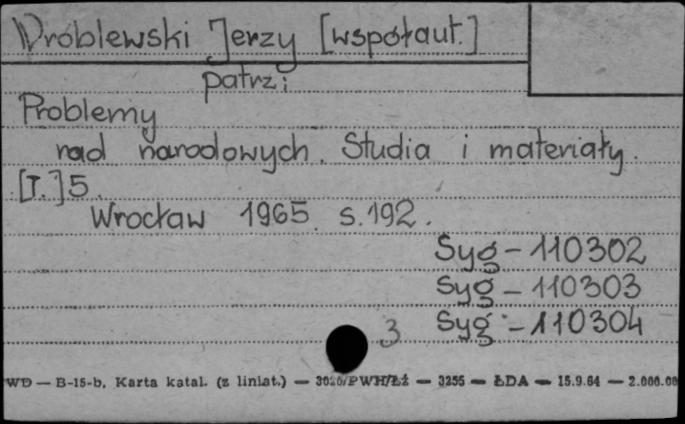 Wróblewski Jerzy [współaut.]
patrz:
Problemy
rad narodowych. Studia i materiały.
[T.] 5.
Wrocław 1965. s. 192.
Syg - 110302
Syg - 110303
3 Syg - 110304
WD — B-15-b. Karta katal. (z liniat.) — 3020/PWH/Łź — 3255 — ŁDA — 15.9.64 — 2.000.00